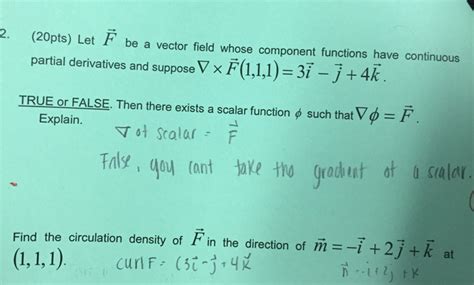 2. (20pts) Let F⃗ be a vector field whose component functions have continuous
partial derivatives and suppose ∇ × F⃗(1,1,1) = 3i⃗ − j⃗ + 4k⃗ .
TRUE or FALSE. Then there exists a scalar function ϕ such that ∇ϕ = F⃗ .
Explain.
∇ of scalar = F⃗
False, you cant take the gradient of a scalar.
Find the circulation density of F⃗ in the direction of m⃗ = −i⃗ + 2j⃗ + k⃗ at
(1,1,1).
curl F = (3i⃗ − j⃗ + 4k⃗
n⃗ = -i + 2j + k